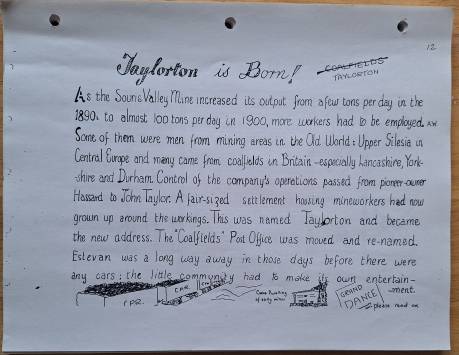 12
Taylorton is Born!
COALFIELDS
TAYLORTON
As the Souris Valley Mine increased its output from a few tons per day in the
1890s to almost 100 tons per day in 1900, more workers had to be employed.
Some of them were men from mining areas in the Old World: Upper Silesia in
Central Europe and many came from coalfields in Britain - especially Lancashire, York-
shire and Durham. Control of the company's operations passed from pioneer-owner
Hassard to John Taylor. A fair-sized settlement housing mineworkers had now
grown up around the workings. This was named Taylorton and became
the new address. The "Coalfields" Post Office was moved and re-named.
Estevan was a long way away in those days before there were
any cars: the little community had to make its own entertain-
ment.
C.P.R.
GRAND
DANCE
please read on